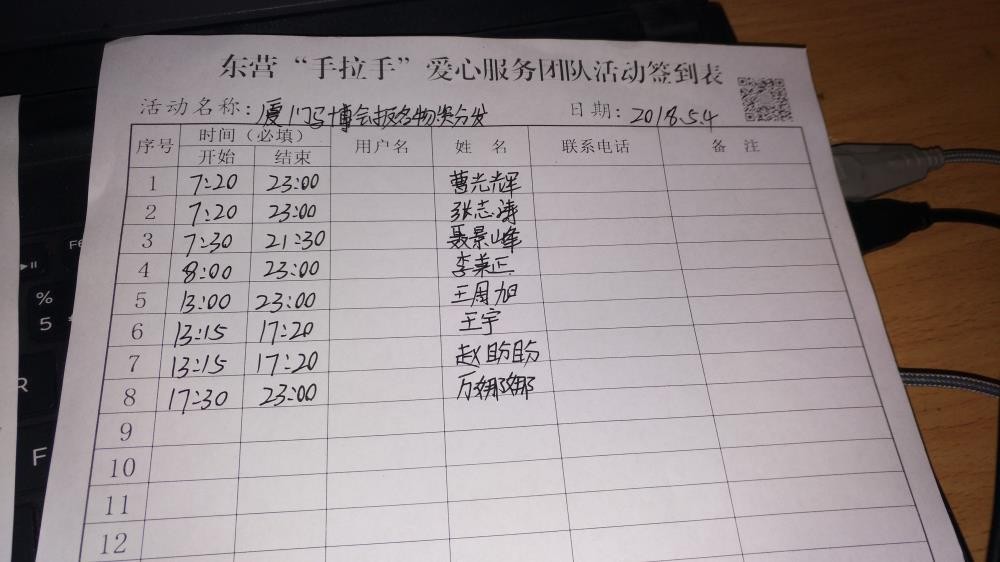 东营“手拉手”爱心服务团队活动签到表
活动名称：厦门马博会报名物资分发 日期：2018.5.4
序号 时间（必填） 用户名 姓 名 联系电话 备 注
开始 结束
1 7:20 23:00 曹光辉
2 7:20 23:00 张志涛
3 7:30 21:30 聂景峰
4 8:00 23:00 李荣正
5 13:00 23:00 王周旭
6 13:15 17:20 王宇
7 13:15 17:20 赵盼盼
8 17:30 23:00 万娜娜
9
10
11
12
F6
%
5
R
F